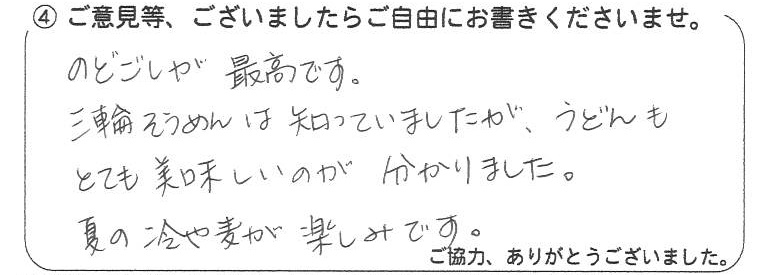 ④ ご意見等、ございましたらご自由にお書きくださいませ。
のどごしが 最高です。
三輪そうめんは 知っていましたが、うどんも
とても 美味しいのが 分かりました。
夏の 冷や麦が 楽しみです。
ご協力、ありがとうございました。